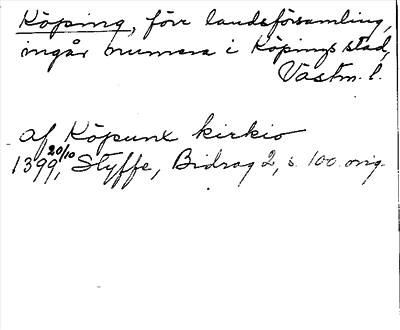 Köping, förr landsförsamling,
ingår numera i Köpings stad,
Västm. l.
af Köpunx kirkio
1399 20/10, Styffe, Bidrag 2, s. 100. orig.